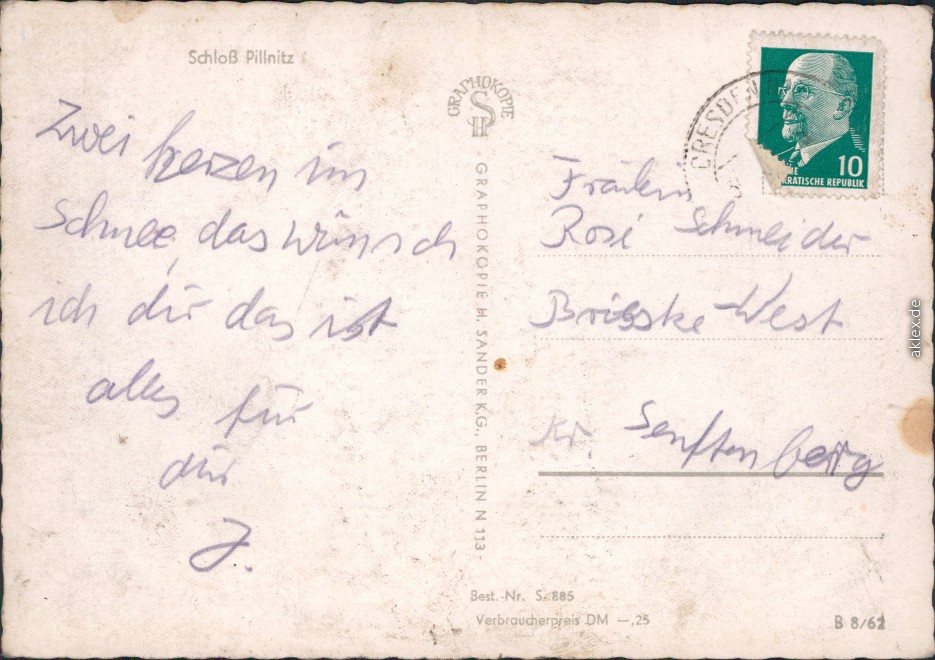 Schloß Pillnitz
Zwei herzen im
Schnee, das wünsch
ich dir das ist
alles für
dir
J.
GRAPHOKOPIE
SH
GRAPHOKOPIE H. SANDER K.G., BERLIN N 113
DRESDEN
10
KRATISCHE REPUBLIK
Fräulein
Rosi Schneider
Brieske-West
Kr. Senftenberg
Best.-Nr. S. 885
Verbraucherpreis DM —,25
B 8/62
aklex.de